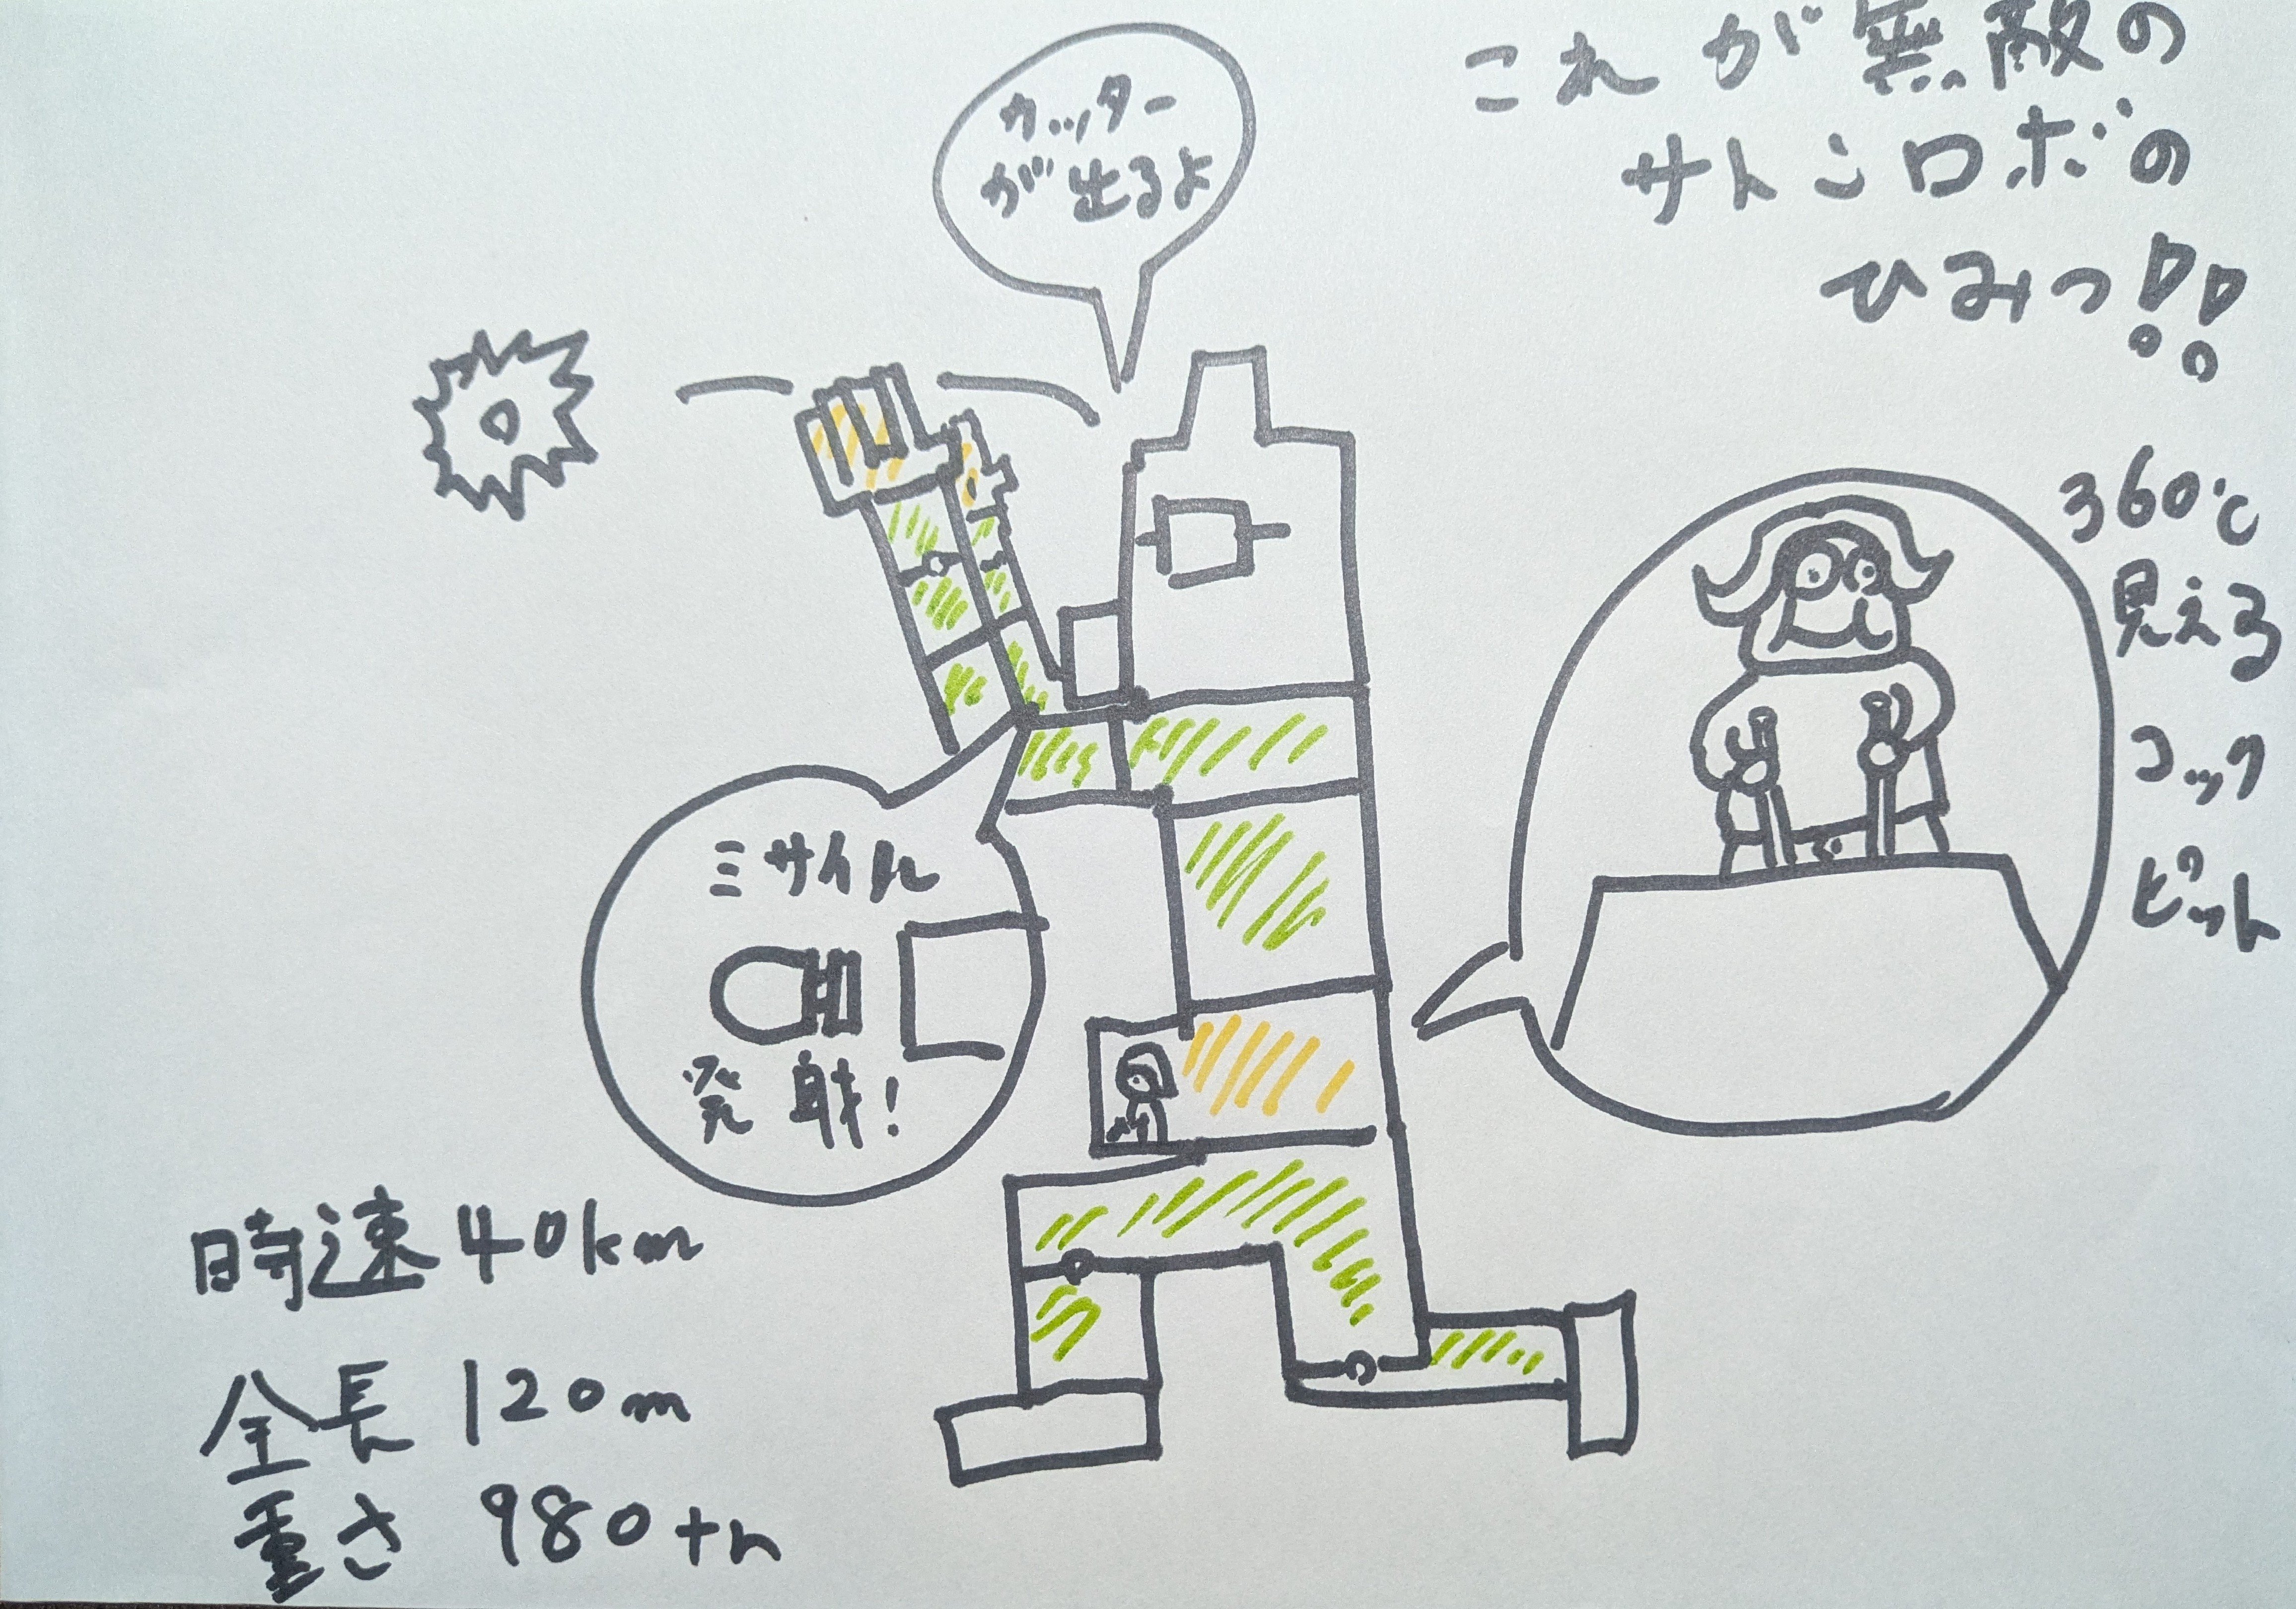 これが無敵の
サトシロボの
ひみつ!!
カッター
が出るよ
360℃
見える
コック
ピット
ミサイル
発射!
時速40km
全長120m
重さ980tn